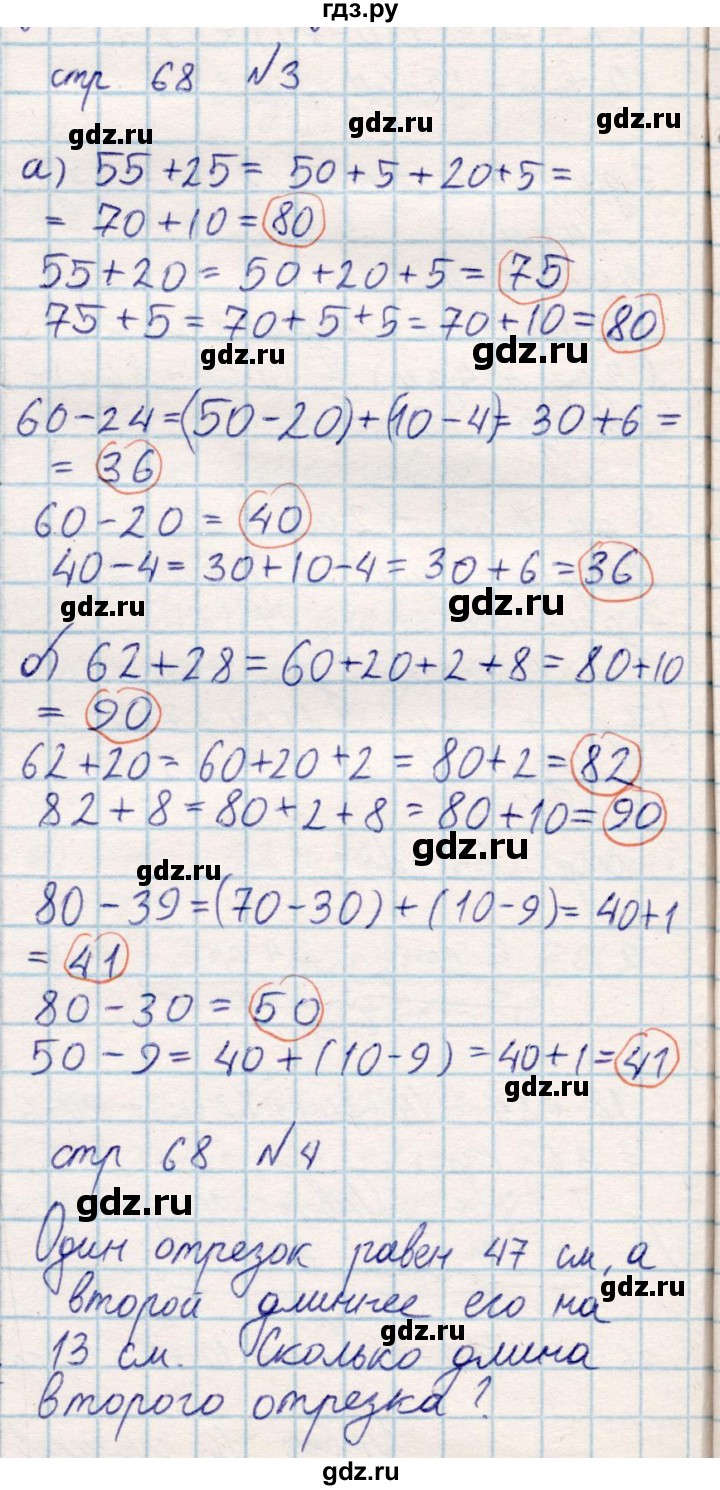 гдз.ру
стр 68 №3
gdz.ru gdz.ru gdz.ru
а) 55+25= 50+5+20+5=
= 70+10=80
55+20=50+20+5=75
75+5=70+5+5=70+10=80
gdz.ru gdz.ru
60-24=(50-20)+(10-4)= 30+6=
= 36
60-20 = 40
40-4= 30+10-4= 30+6=36
gdz.ru gdz.ru
б) 62+28=60+20+2+8=80+10
= 90
62+20= 60+20+2 = 80+2=82
82+8=80+2+8=80+10=90
gdz.ru
gdz.ru
80-39=(70-30)+(10-9)= 40+1
= 41
80-30= 50
50-9= 40+(10-9)=40+1=41
gdz.ru
стр 68 №4
gdz.ru
Один отрезок равен 47 см, а
gdz.ru
второй длиннее его на
gdz.ru
13 см. Сколько длина
второго отрезка?
gdz.ru
gdz.ru